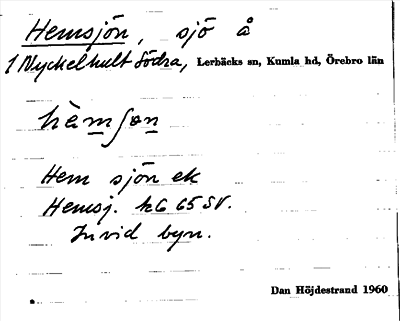 Hemsjön, sjö å
1 Nyckelhult Södra, Lerbäcks sn, Kumla hd, Örebro län
hèmʃøn
Hem sjön ek
Hemsj. hG 65 SV.
Invid byn.
Dan Höjdestrand 1960